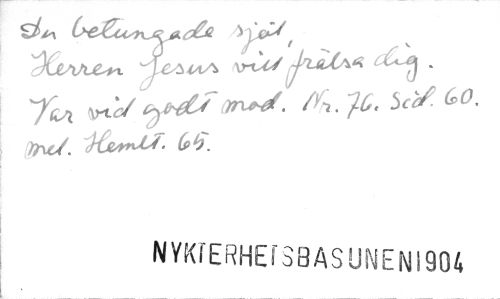 Du betungade själ,
Herren Jesus vill frälsa dig.
Var vid godt mod. Nr. 76. Sid. 60.
mel. Hemlt. 65.
NYKTERHETSBASUNEN 1904